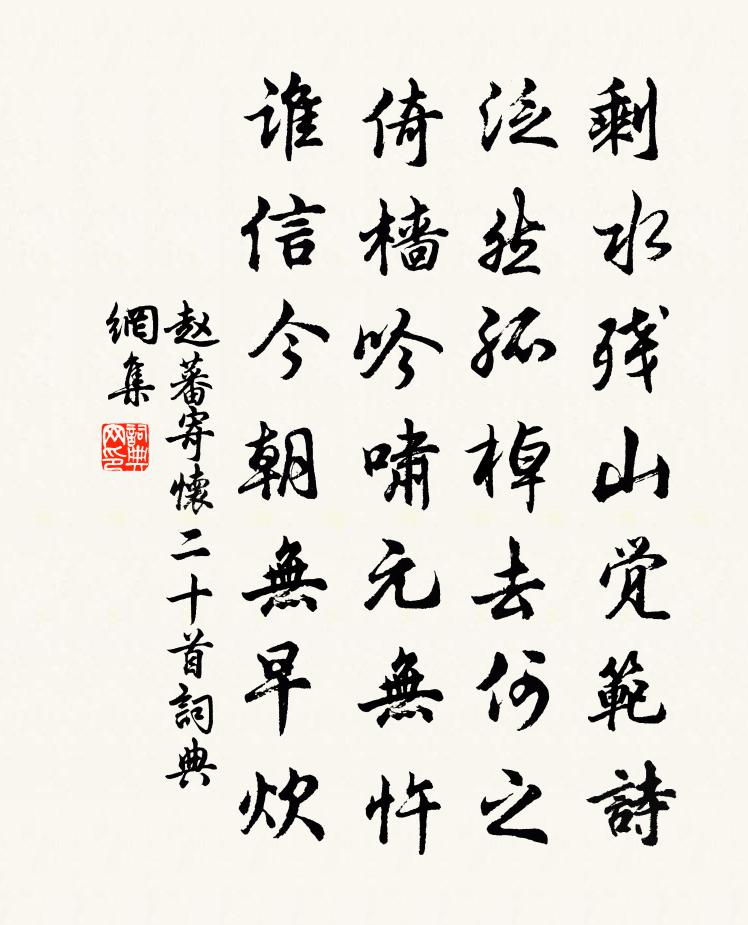 剩水残山覚範詩
泛然孤棹去何之
倚檣吟嘯元無忤
谁信今朝無早炊
赵蕃寄懷二十首詞典
網集
詞典
网印